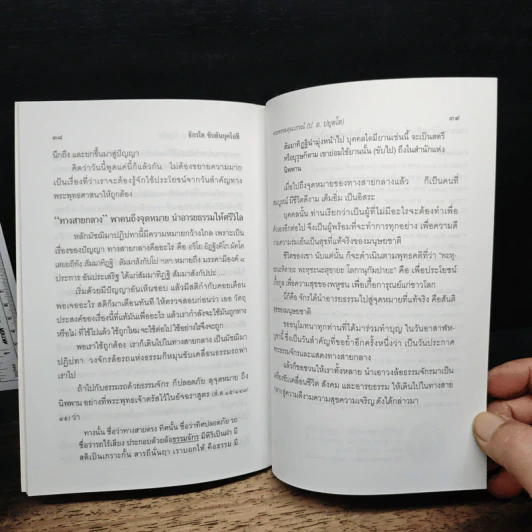 ๓๘
จักรใด ขับดันยุคไอที
นึกถึง และยกขึ้นมาสู่ปัญญา
คิดว่าวันนี้พูดแค่นี้ก็แล้วกัน ไม่ต้องขยายความมาย
เป็นเรื่องที่ว่าเราจะต้องรู้จักใช้ประโยชน์จากวันสำคัญทาง
พระพุทธศาสนาให้ถูกต้อง
“ทางสายกลาง” พาคนถึงจุดหมาย นำอารยธรรมให้ศรีวิไล
หลักมัชฌิมาปฏิปทานี้มีความหมายกว้างไกล เพราะเป็น
เรื่องของปัญญา ทางสายกลางคืออะไร คือ อริโย อัฏฐังคิโก มัคโค
เสยยถีทัง สัมมาทิฏฐิ สัมมาสังกัปโป ฯลฯ หมายถึง มรรคามีองค์ ๘
ประการ อันประเสริฐ ได้แก่สัมมาทิฏฐิ สัมมาสังกัปปะ...
เริ่มด้วยมีปัญญาอันเห็นชอบ แล้วมีสติกำกับคอยเตือน
พอเจออะไร สติก็มาเตือนทันที ให้ตรวจสอบก่อนว่า เออ วัตถุ
ประสงค์ของเรื่องนี้ที่แท้มันเพื่ออะไร แล้วเรากำลังจะใช้มันถูกทาง
หรือไม่ ที่ใช้ไปแล้ว ใช้ถูกไหม จะใช้ต่อไป ใช้อย่างไรจึงจะถูก
พอเราใช้ถูก เราก็เดินไปในทางสายกลาง เป็นมัชฌิมา
ปฏิปทา วงจักรล้อรถแห่งธรรมก็หมุนขับเคลื่อนธรรมรถพา
เราไป
ถ้าไปกับธรรมรถด้วยธรรมจักร ก็ปลอดภัย ลุจุดหมาย ถึง
นิพพาน อย่างที่พระพุทธเจ้าตรัสไว้ในอัจฉราสูตร
ว่า
ทางนั้น ชื่อว่าทางสายตรง ทิศนั้น ชื่อว่าทิศปลอดภัย รถ
ชื่อว่ารถไร้เสียง ประกอบด้วยล้อธรรมจักร มีหิริเป็นฝา มี
สติเป็นเกราะกั้น สารถีนั้นฤา เราบอกให้ คือธรรม มี
พระพรหมคุณาภรณ์ (ป. อ. ปยุตฺโต)
๓๙
สัมมาทิฏฐินำมุ่งหน้าไป บุคคลใดมียานเช่นนี้ จะเป็นสตรี
หรือบุรุษก็ตาม เขาย่อมใช้ยานนั้น (ขับไป) ถึงในสำนักแห่ง
นิพพาน
เมื่อไปถึงจุดหมายของทางสายกลางแล้ว ก็เป็นคนที่
สมบูรณ์ มีชีวิตดีงาม เต็มอิ่ม เป็นอิสระ
บุคคลนั้น ท่านเรียกว่าเป็นผู้ที่ไม่มีอะไรจะต้องทำเพื่อ
ตัวเองอีกต่อไป จึงเป็นผู้พร้อมที่จะทำการทุกอย่าง เพื่อความดี
งามความร่มเย็นเป็นสุขที่แท้จริงของมนุษยชาติ
ชีวิตของเขา นับแต่นั้น ก็จะดำเนินตามพุทธคติที่ว่า “พะหุ-
ชะนะหิตายะ พะหุชะนะสุขายะ โลกานุกัมปายะ” คือ เพื่อประโยชน์
เกื้อกูล เพื่อความสุขของพหูชน เพื่อเกื้อการุณย์แก่ชาวโลก
นี่ก็คือ จักรได้นำอารยธรรมไปสู่จุดหมายที่แท้จริง คือสันติ
สุขของมนุษยชาติ
ขออนุโมทนาทุกท่านที่ได้มาร่วมทำบุญ ในวันอาสาฬห-
บูชานี้ ซึ่งเป็นวันสำคัญที่ขอย้ำอีกครั้งหนึ่งว่า เป็นวันประกาศ
พระธรรมจักรและแสดงทางสายกลาง
แล้วก็ขอชวนให้เราทั้งหลาย นำเอาวงล้อธรรมจักรมาเป็น
เครื่องขับเคลื่อนชีวิต สังคม และอารยธรรม ให้เดินไปในทางสาย
กลาง สู่ความดีงามความสุขความเจริญ ดังได้กล่าวมา